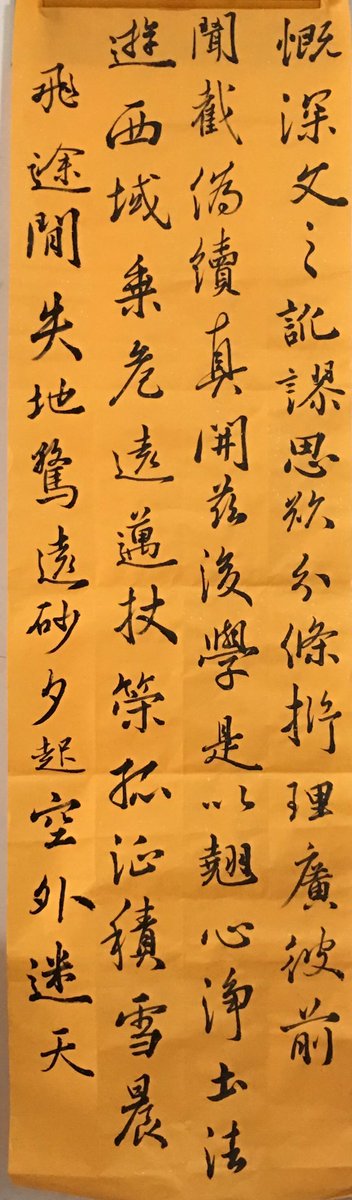 慨深文之訛謬思欲分條析理廣彼前
聞截偽續真開茲後學是以翹心淨土法
遊西域乘危遠邁杖策孤征積雪晨
飛途間失地驚遠砂夕起空外迷天